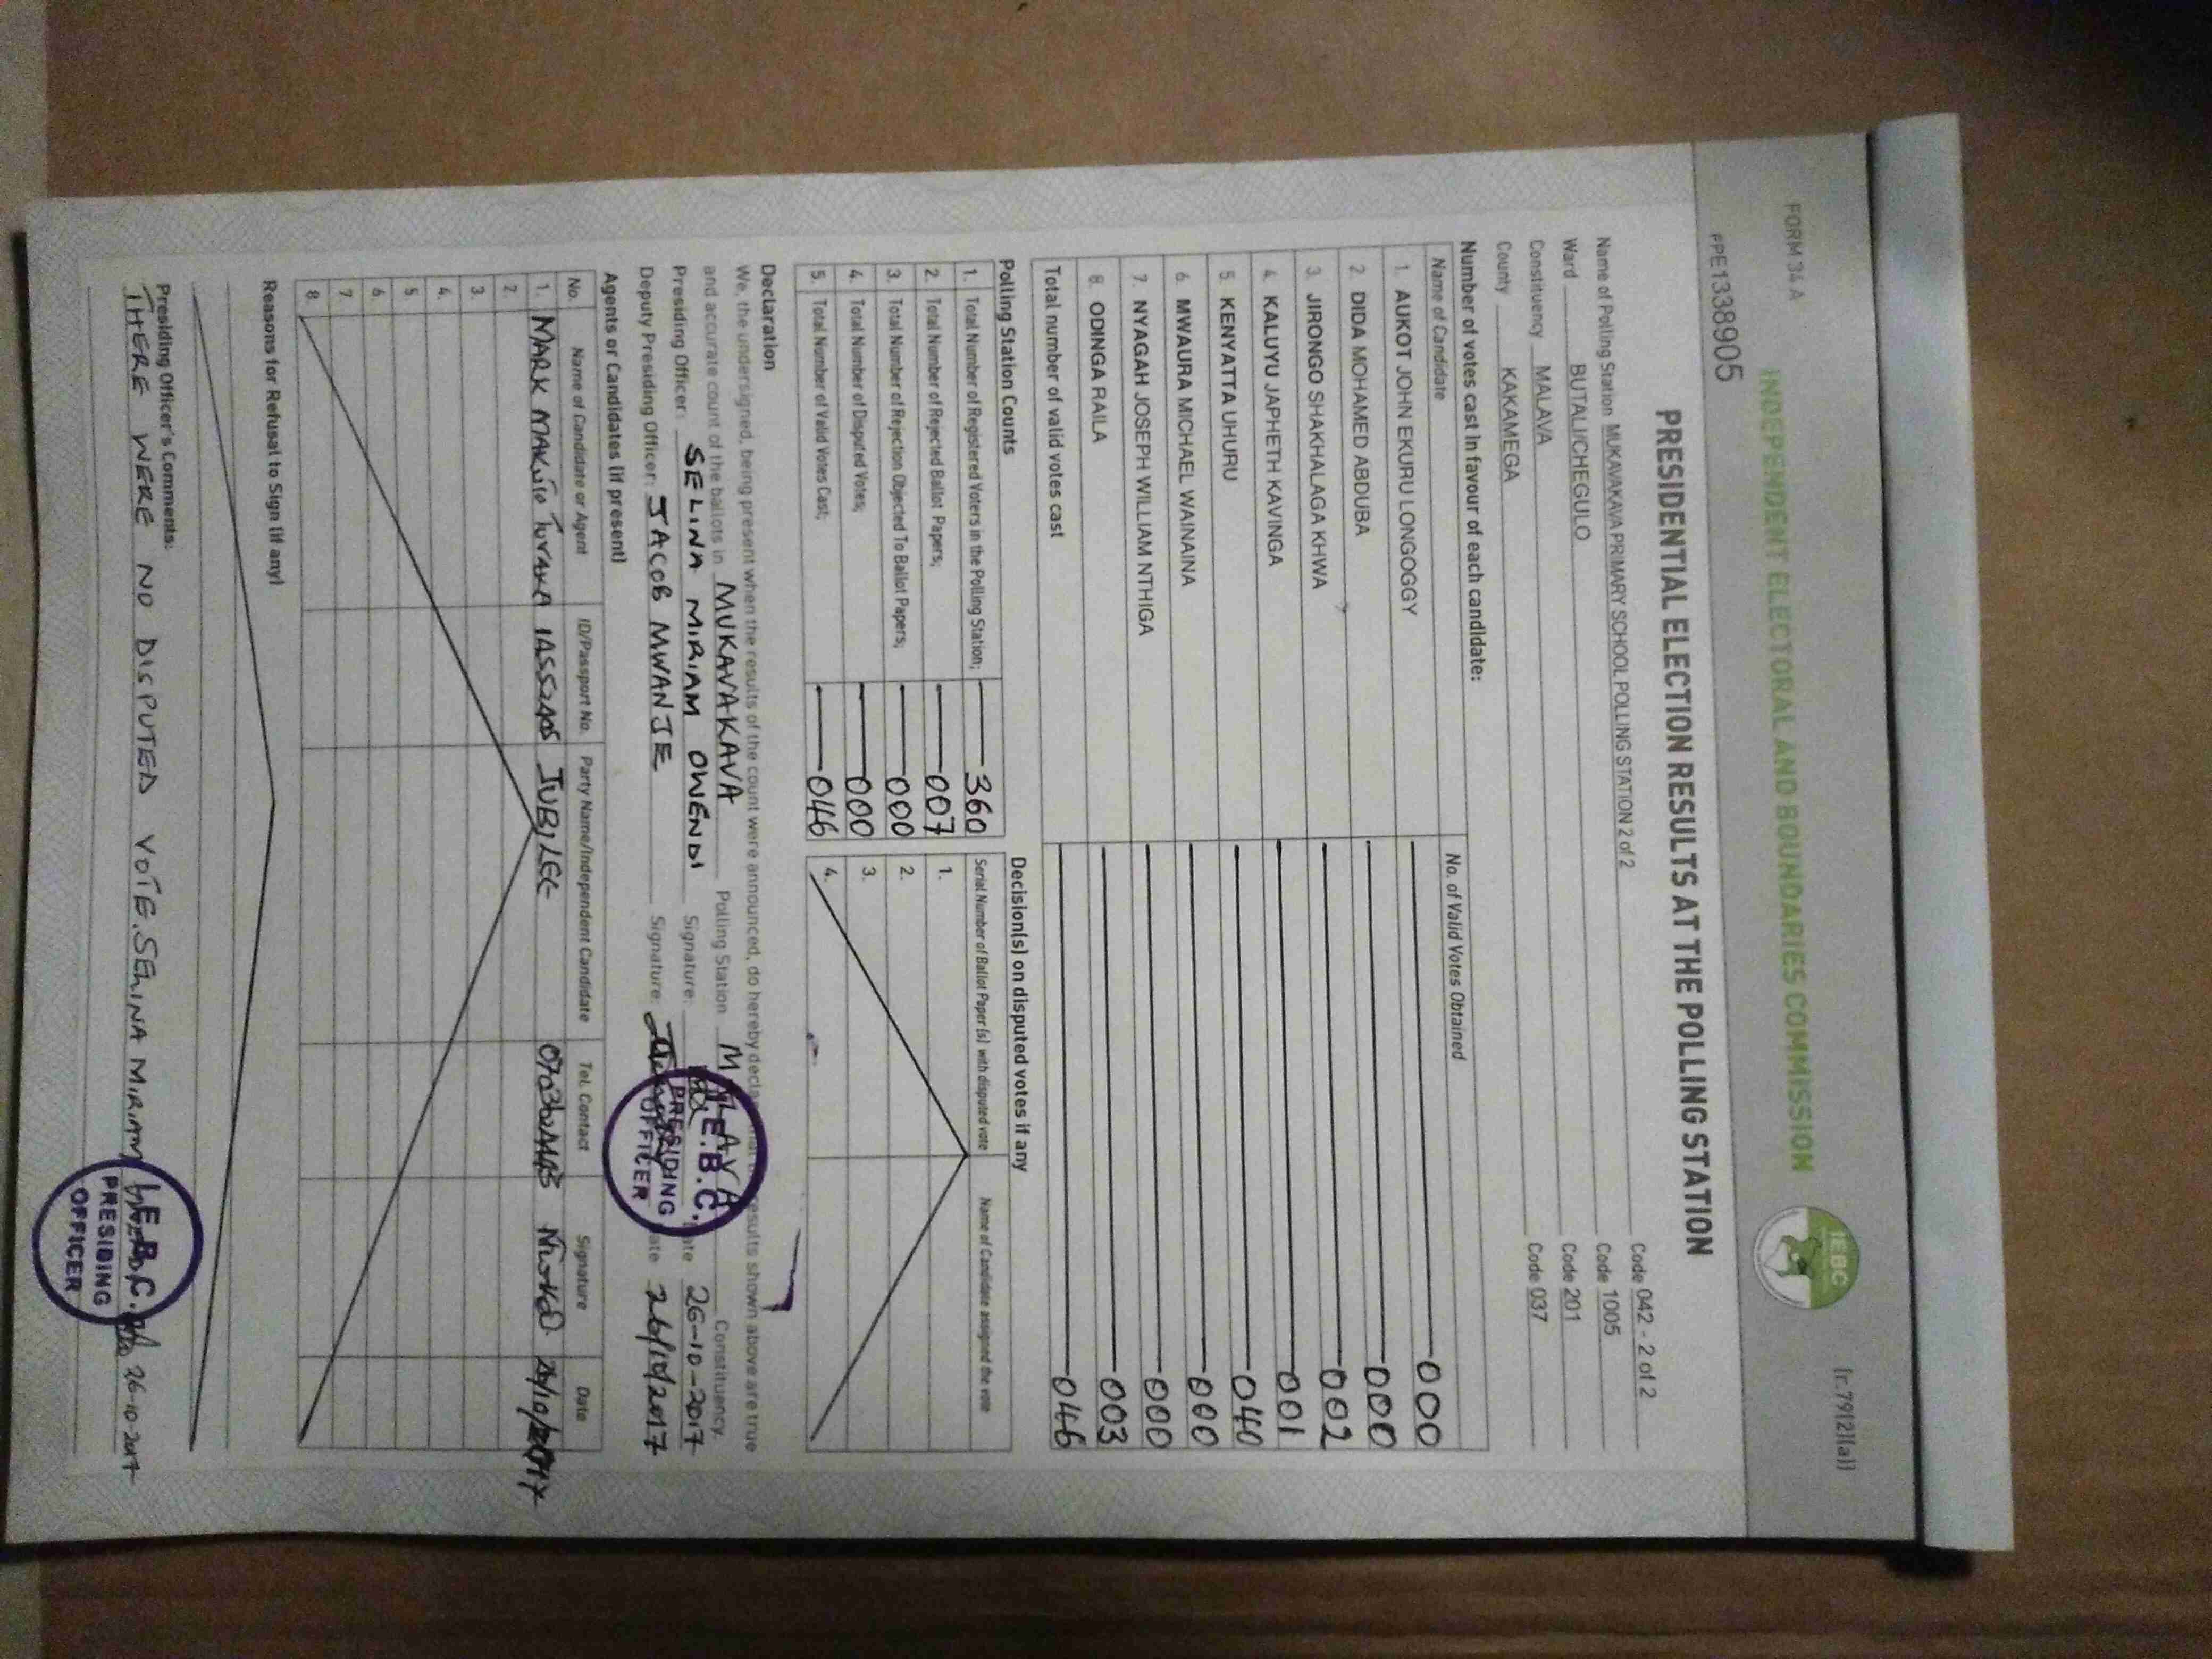 FORM 34 A
(r.79(2)(a))
INDEPENDENT ELECTORAL AND BOUNDARIES COMMISSION
IEBC
PPE1338905
PRESIDENTIAL ELECTION RESULTS AT THE POLLING STATION
Name of Polling Station MUKAVAKAVA PRIMARY SCHOOL POLLING STATION 2 of 2 Code 042 - 2 of 2
Ward BUTALI/CHEGULO Code 1005
Constituency MALAVA Code 201
County KAKAMEGA Code 037
Number of votes cast in favour of each candidate:
Name of Candidate No. of Valid Votes Obtained
1. AUKOT JOHN EKURU LONGOGGY 000
2. DIDA MOHAMED ABDUBA 000
3. JIRONGO SHAKHALAGA KHWA 002
4. KALUYU JAPHETH KAVINGA 001
5. KENYATTA UHURU 040
6. MWAURA MICHAEL WAINAINA 000
7. NYAGAH JOSEPH WILLIAM NTHIGA 000
8. ODINGA RAILA 003
Total number of valid votes cast 046
Polling Station Counts
1. Total Number of Registered Voters in the Polling Station; 360
2. Total Number of Rejected Ballot Papers; 007
3. Total Number of Rejection Objected To Ballot Papers; 000
4. Total Number of Disputed Votes; 000
5. Total Number of Valid Votes Cast; 046
Decision(s) on disputed votes if any
Serial Number of Ballot Paper (s) with disputed vote Name of Candidate assigned the vote
1.
2.
3.
4.
Declaration
We, the undersigned, being present when the results of the count were announced, do hereby declare that the results shown above are true
and accurate count of the ballots in MUKAVAKAVA Polling Station Constituency.
Presiding Officer: SELINA MIRIAM OWENDI Signature: Date 26-10-2017
Deputy Presiding Officer: JACOB MWANJE Signature: Date 26/10/2017
I.E.B.C.
PRESIDING
OFFICER
Agents or Candidates (if present)
No. Name of Candidate or Agent ID/Passport No. Party Name/Independent Candidate Tel. Contact Signature Date
1. MARK JUBILEE
2.
3.
4.
5.
6.
7.
8.
Reasons for Refusal to Sign (if any)
Presiding Officer's Comments:
THERE WERE NO DISPUTED VOTE. SELINA MIRIAM 26-10-2017
I.E.B.C.
PRESIDING
OFFICER